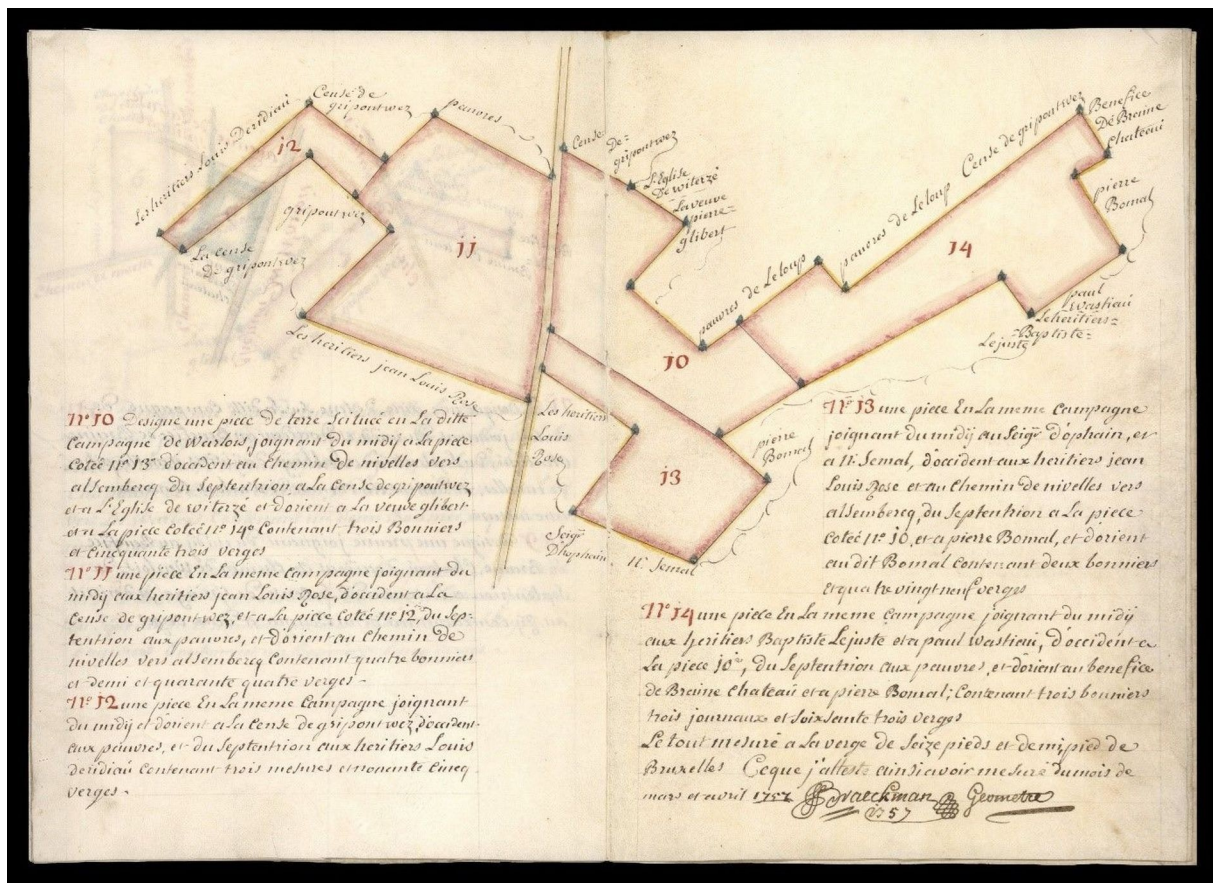 Cense de
gripontwez
pauvres
Les heritiers Louis Deridiau
12
gripontwez
La cense
De gripontwez
11
Les heritiers jean Louis Rose
Cense
De
gripontwez
L'Eglise
De witerzé
La veuve
pierre
glibert
pauvres de Leloup
pauvres de Leloup
Cense de gripontwez
Benefice
De Braine
Chateau
pierre
Bomal
14
paul
wastiau
Le heritiers
Baptiste
Lejuste
10
Les heritiers
Louis
Rose
13
pierre
Bomal
Seigr
Dhophain
Semal
Nº 10 Designe une piece de terre scituée en La ditte
Campagne de warlois, joignant du midij a La piece
Coteé nº 13 d'occident au Chemin de nivelles vers
alsembercq du Septentrion a La Cense de gripontwez
et a L'Eglise de witerzé et d'orient a La veuve glibert
et a La piece Coteé nº 14º Contenant trois Bonniers
et Cincquante trois verges
Nº 11 une piece En La meme Campagne joignant du
midij aux heritiers jean Louis Rose, d'occident a La
Cense de gripontwez, et a La piece Coteé nº 12, du Sep-
tention aux pauvres, et d'orient au Chemin de
nivelles vers alsembercq Contenant quatre bonniers
et demi et quarante quatre verges -
Nº 12 une piece En La meme Campagne joignant
du midij et d'orient a La Cense de gripontwez, d'occident
aux pauvres, et du Septentrion aux heritiers Louis
deridiau Contenant trois mesures et nonante Cincq
verges -
Nº 13 une piece En La meme Campagne
joignant du midij au Seigr d'ophain, et
a Semal, d'occident aux heritiers jean
Louis Rose et au Chemin de nivelles vers
alsembercq, du Septentrion a La piece
Coteé nº 10, et a pierre Bomal, et d'orient
au dit Bomal contenant deux bonniers
et quatre vingt neuf verges
Nº 14 une piece En La meme Campagne joignant du midij
aux heritiers Baptiste Lejuste et a paul wastiau, d'occident a
La piece 10e, du Septentrion aux pauvres, et d'orient au benefice
de Braine Chateau et a pierre Bomal; Contenant trois bonniers
trois journaux et Soixsante trois verges
Le tout mesuré a La verge de Seize pieds et demij pied de
Bruxelles Ceque j'atteste ainsi avoir mesuré du mois de
mars et avril 1757 Braeckman Geometre
1757